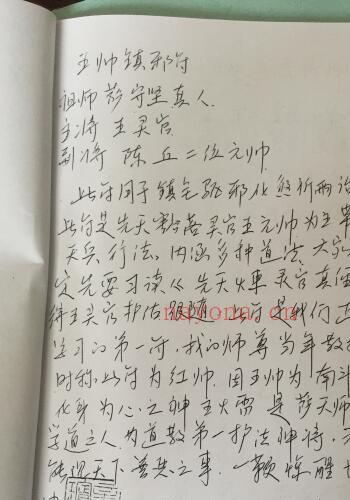 王帅镇邪符
祖师萨守坚真人
主将 王灵官
副将 陈 丘二位元帅
此符用于镇宅驱邪化煞祈雨
此符是先天 灵官王元帅为主
天兵行法。内涵多种道法，大家
定先要习读《先天火車灵官真
得王灵官护佑跟随。此符是我们
学习的第一符，我的师尊当年教
时称此符为红帅。因王帅为南斗
化身为心之神主火雷是萨天师
学道之人，为道教第一护法神将，
能观天下善恶之事。一鞭惊醒世